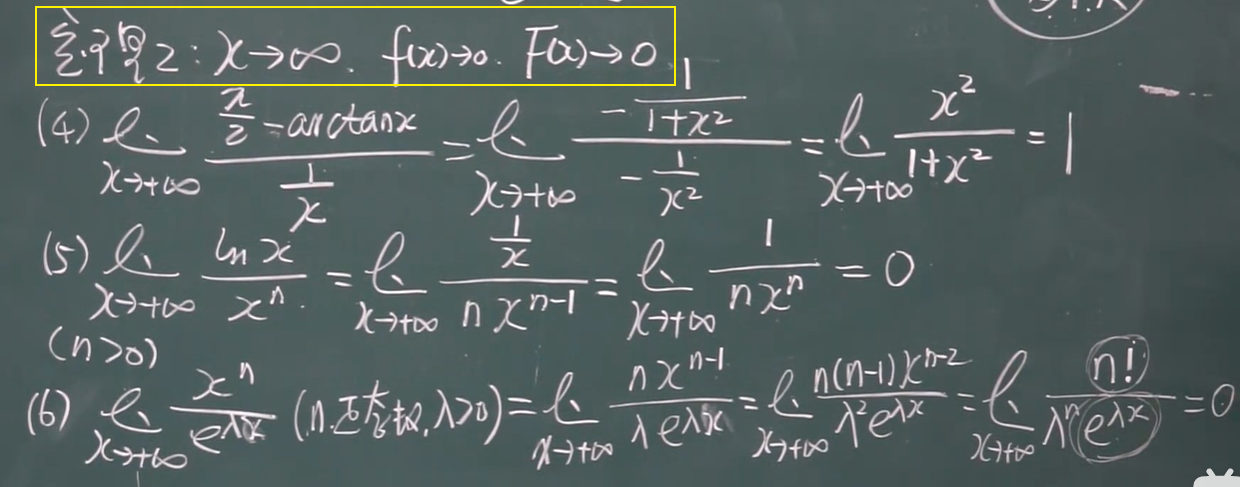 定理2: x→∞. f(x)→0. F(x)→0
(4) lim_{x→+∞} \frac{\frac{π}{2}-arctanx}{\frac{1}{x}} = lim_{x→+∞} \frac{-\frac{1}{1+x^2}}{-\frac{1}{x^2}} = lim_{x→+∞} \frac{x^2}{1+x^2} = 1
(5) lim_{x→+∞} \frac{ln x}{x^n} = lim_{x→+∞} \frac{\frac{1}{x}}{n x^{n-1}} = lim_{x→+∞} \frac{1}{n x^n} = 0
(n>0)
(6) lim_{x→+∞} \frac{x^n}{e^{λx}} (n.正整数,λ>0) = lim_{x→+∞} \frac{n x^{n-1}}{λ e^{λx}} = lim_{x→+∞} \frac{n(n-1)x^{n-2}}{λ^2 e^{λx}} = lim_{x→+∞} \frac{n!}{λ^n e^{λx}} = 0